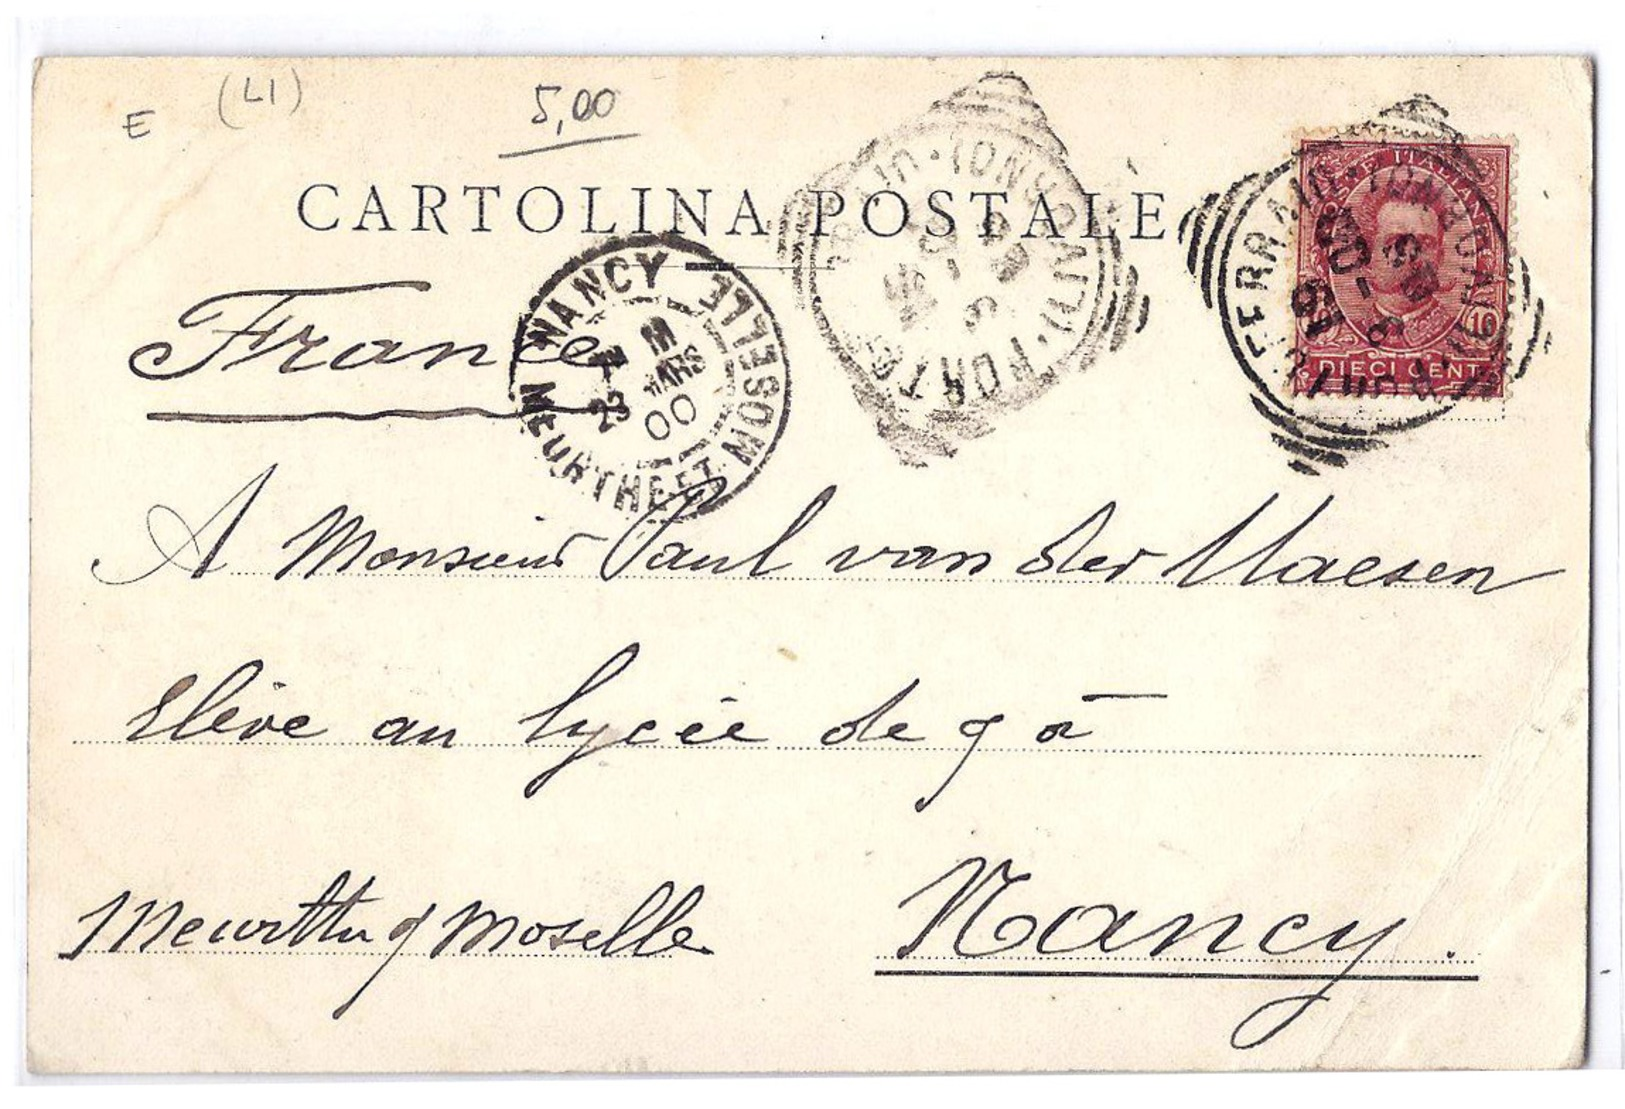 E (L1) 5,00
CARTOLINA POSTALE
POSTE ITALIANE
10
DIECI CENT.
NANCY
MEURTHE ET MOSELLE
23 MARS
00
France
A Monsieur Paul van der Maesen
Elève au lycée de q à
Meurthe & Moselle Nancy.